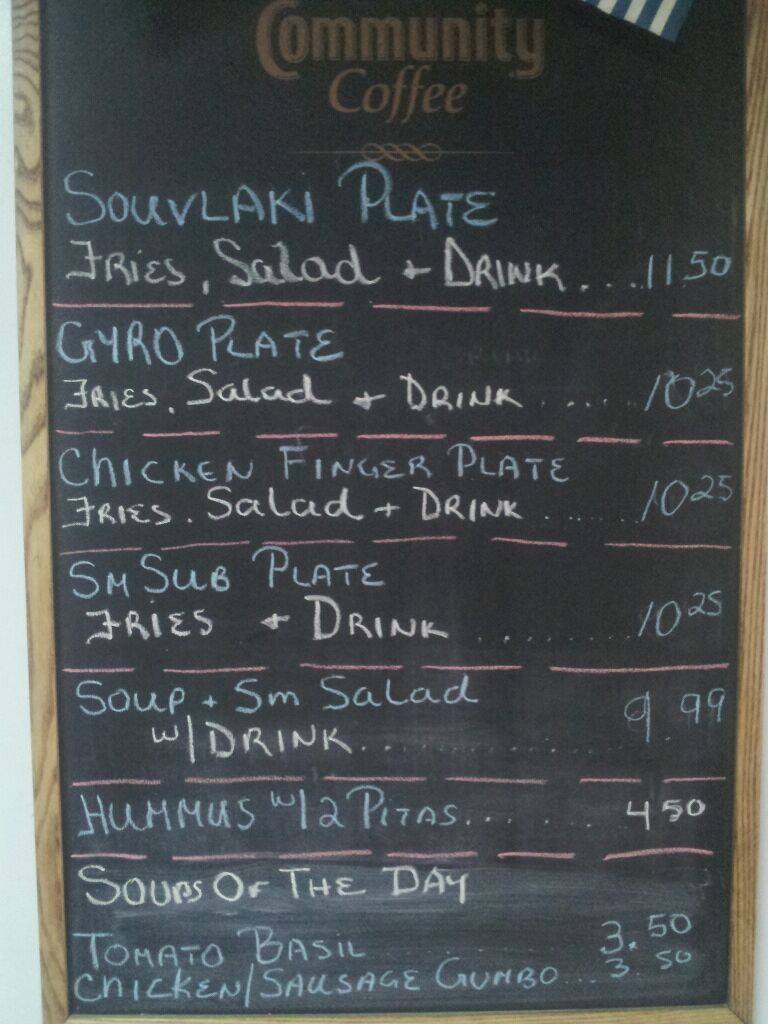 Community
Coffee
SOUVLAKI PLATE
FRIES, Salad + DRINK....11.50
GYRO PLATE
FRIES, Salad + DRINK ..... 10 25
CHICKEN FINGER PLATE
FRIES. Salad + DRINK ....... 10 25
SM SUB PLATE
FRIES + DRINK .......... 10 25
SOUP + Sm Salad
w/DRINK.............. 9.99
HUMMUS w/2 PITAS...... 4 50
SOUPS OF THE DAY
TOMATO BASIL ........ 3.50
CHICKEN/SAUSAGE GUMBO... 3 50